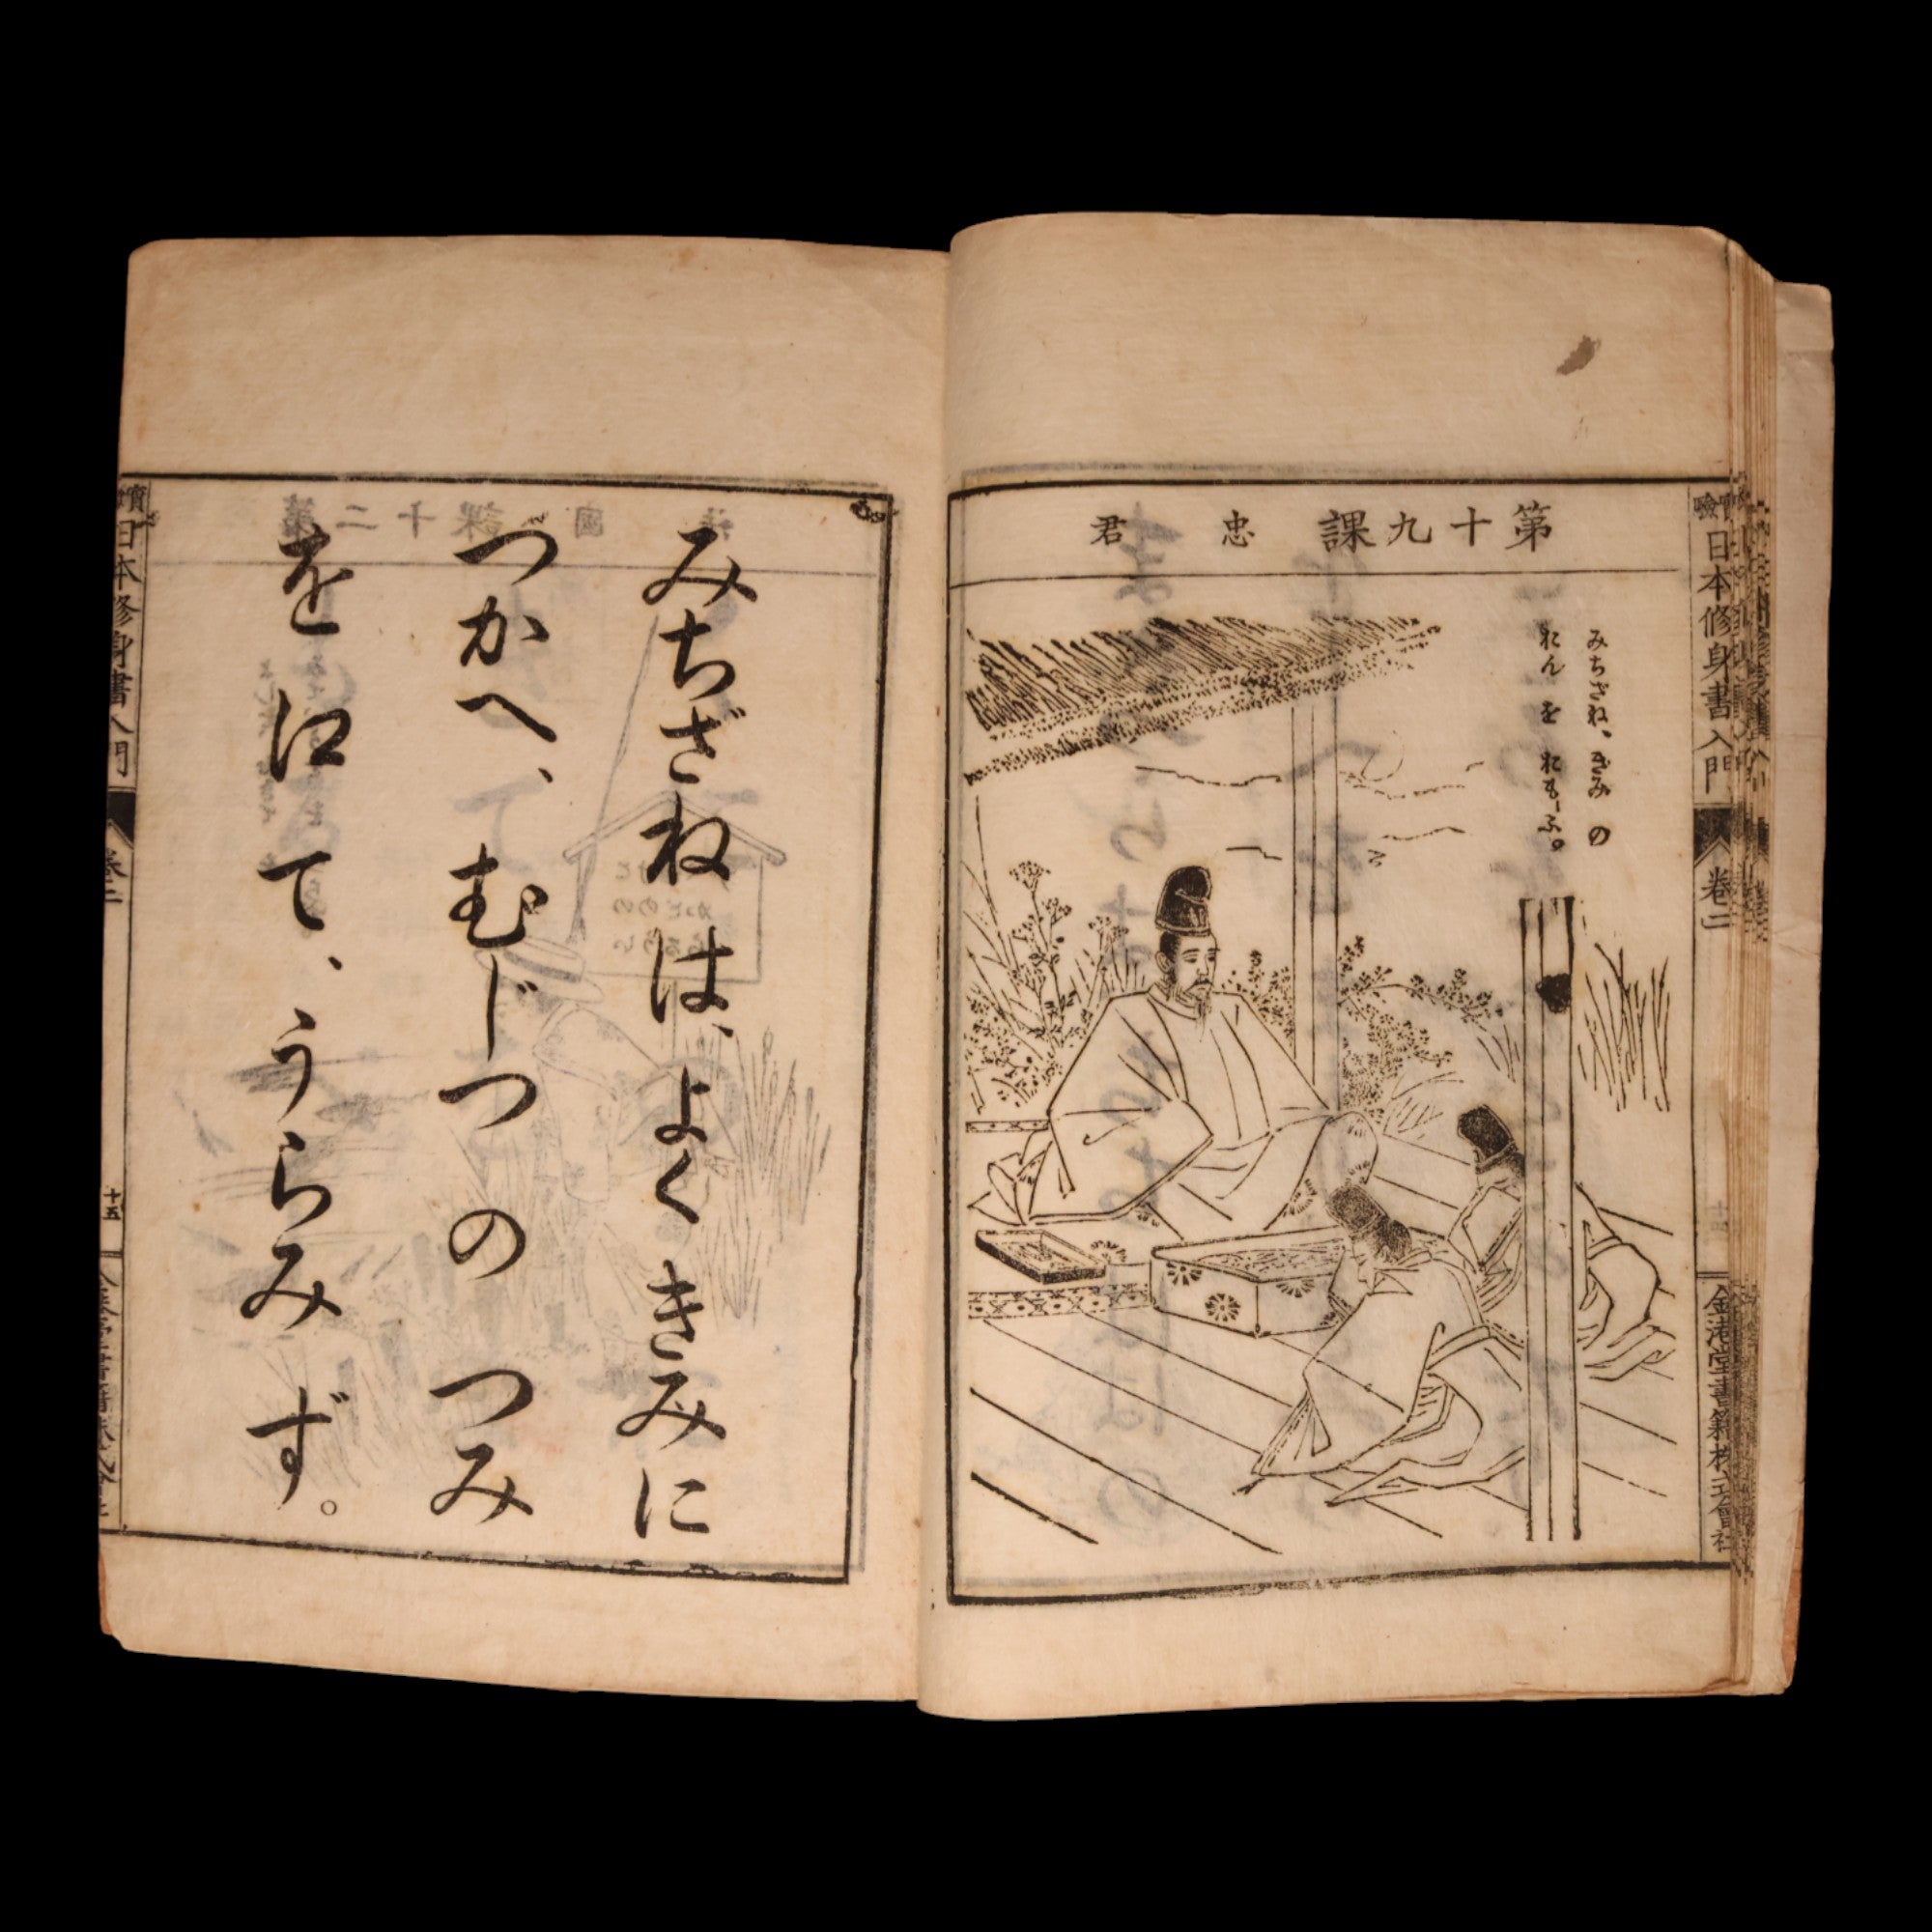 第十九課 忠君
みちざね、きみ の
おん を おもーふ。
實驗 日本修身書入門 卷二
金港堂書籍株式會社
みちざねは、よくきみに
つかへ、むじつの つみ
を 江て、うらみず。
日本修身書入門 卷二
十五